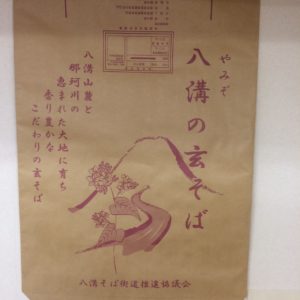 やみぞ
八溝の玄そば
八溝山麓と
那珂川の
恵まれた大地に育ち
香り豊かな
こだわりの玄そば
八溝そば街道推進協議会